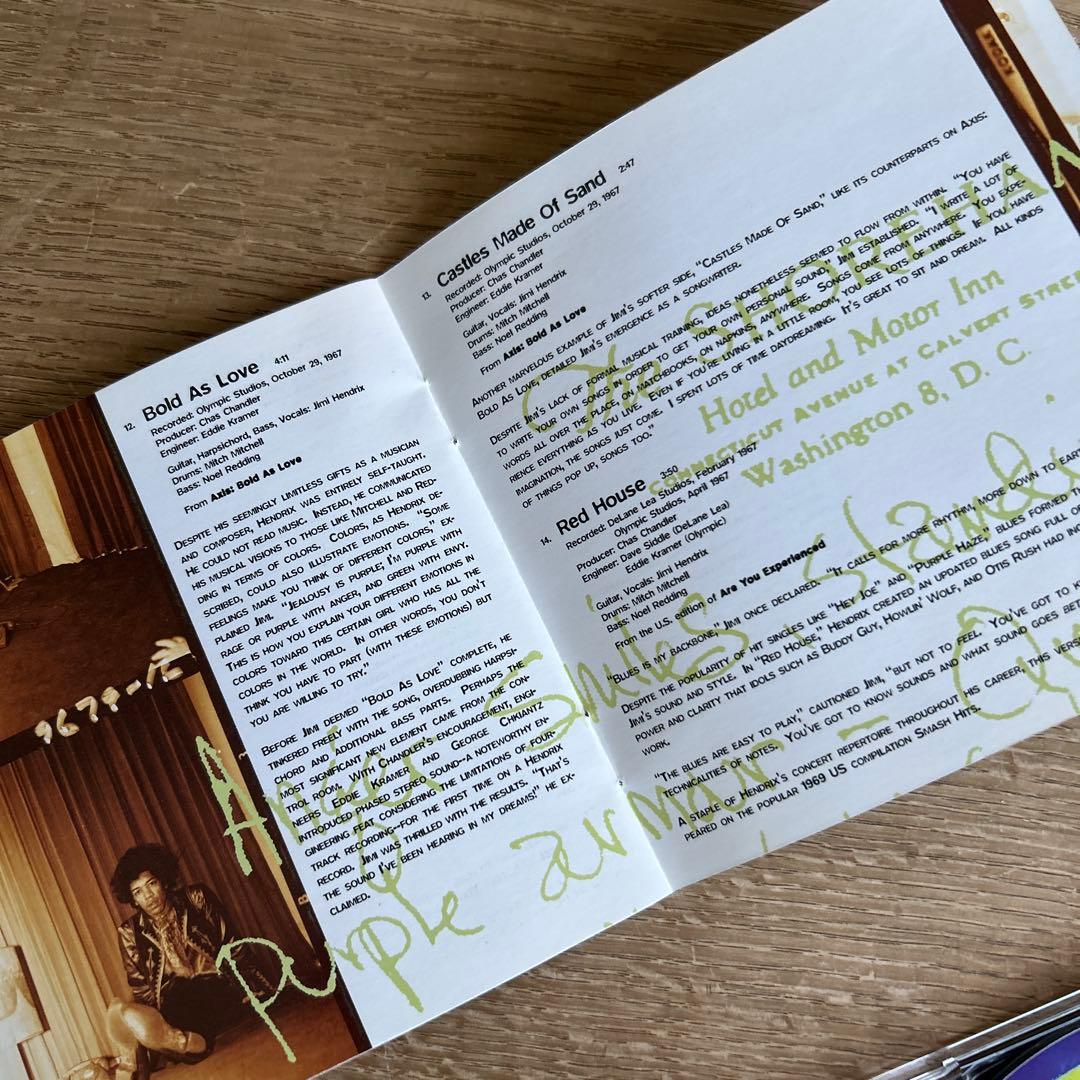 12. Bold As Love 4:11
Recorded: Olympic Studios, October 29, 1967
Producer: Chas Chandler
Engineer: Eddie Kramer
Guitar, Harpsichord, Bass, Vocals: Jimi Hendrix
Drums: Mitch Mitchell
Bass: Noel Redding
From Axis: Bold As Love
DESPITE HIS SEEMINGLY LIMITLESS GIFTS AS A MUSICIAN
AND COMPOSER, HENDRIX WAS ENTIRELY SELF-TAUGHT.
HE COULD NOT READ MUSIC. INSTEAD, HE COMMUNICATED
HIS MUSICAL VISIONS TO THOSE LIKE MITCHELL AND RED-
DING IN TERMS OF COLORS. COLORS, AS HENDRIX DE-
SCRIBED, COULD ALSO ILLUSTRATE EMOTIONS. "SOME
FEELINGS MAKE YOU THINK OF DIFFERENT COLORS," EX-
PLAINED JIMI. "JEALOUSY IS PURPLE; I'M PURPLE WITH
RAGE OR PURPLE WITH ANGER, AND GREEN WITH ENVY.
THIS IS HOW YOU EXPLAIN YOUR DIFFERENT EMOTIONS IN
COLORS TOWARD THIS CERTAIN GIRL WHO HAS ALL THE
COLORS IN THE WORLD. IN OTHER WORDS, YOU DON'T
THINK YOU HAVE TO PART (WITH THESE EMOTIONS) BUT
YOU ARE WILLING TO TRY."
BEFORE JIMI DEEMED "BOLD AS LOVE" COMPLETE, HE
TINKERED FREELY WITH THE SONG, OVERDUBBING HARPSI-
CHORD AND ADDITIONAL BASS PARTS. PERHAPS THE
MOST SIGNIFICANT NEW ELEMENT CAME FROM THE CON-
TROL ROOM. WITH CHANDLER'S ENCOURAGEMENT, ENGI-
NEERS EDDIE KRAMER AND GEORGE CHKIANTZ
INTRODUCED PHASED STEREO SOUND--A NOTEWORTHY EN-
GINEERING FEAT CONSIDERING THE LIMITATIONS OF FOUR-
TRACK RECORDING-FOR THE FIRST TIME ON A HENDRIX
RECORD. JIMI WAS THRILLED WITH THE RESULTS. "THAT'S
THE SOUND I'VE BEEN HEARING IN MY DREAMS!" HE EX-
CLAIMED.
13. Castles Made Of Sand 2:47
Recorded: Olympic Studios, October 29, 1967
Producer: Chas Chandler
Engineer: Eddie Kramer
Guitar, Vocals: Jimi Hendrix
Drums: Mitch Mitchell
Bass: Noel Redding
From Axis: Bold As Love
ANOTHER MARVELOUS EXAMPLE OF JIMI'S SOFTER SIDE, "CASTLES MADE OF SAND," LIKE ITS COUNTERPARTS ON AXIS:
BOLD AS LOVE DETAILED JIMI'S EMERGENCE AS A SONGWRITER.
DESPITE JIMI'S LACK OF FORMAL MUSICAL TRAINING, IDEAS NONETHELESS SEEMED TO FLOW FROM WITHIN. "YOU HAVE
TO WRITE YOUR OWN SONGS IN ORDER TO GET YOUR OWN PERSONAL SOUND," JIMI ESTABLISHED. "I WRITE A LOT OF
WORDS ALL OVER THE PLACE, ON MATCHBOOKS, ON NAPKINS, ANYWHERE. SONGS COME FROM ANYWHERE. YOU EXPE-
RIENCE EVERYTHING AS YOU LIVE. EVEN IF YOU'RE LIVING IN A LITTLE ROOM, YOU SEE LOTS OF THINGS. IF YOU HAVE
IMAGINATION, THE SONGS JUST COME. I SPENT LOTS OF TIME DAYDREAMING. IT'S GREAT TO SIT AND DREAM. ALL KINDS
OF THINGS POP UP, SONGS TOO."
14. Red House 3:50
Recorded: DeLane Lea Studios, February 1967
Olympic Studios, April 1967
Producer: Chas Chandler
Engineer: Dave Siddle (DeLane Lea)
Eddie Kramer (Olympic)
Guitar, Vocals: Jimi Hendrix
Drums: Mitch Mitchell
Bass: Noel Redding
From the U.S. edition of Are You Experienced
"BLUES IS MY BACKBONE," JIMI ONCE DECLARED. "IT CALLS FOR MORE RHYTHM, MORE DOWN TO
DESPITE THE POPULARITY OF HIT SINGLES LIKE "HEY JOE" AND "PURPLE HAZE," BLUES FORMED
JIMI'S SOUND AND STYLE. IN "RED HOUSE," HENDRIX CREATED AN UPDATED BLUES SONG FULL OF
POWER AND CLARITY THAT IDOLS SUCH AS BUDDY GUY, HOWLIN' WOLF, AND OTIS RUSH HAD
WORK.
"THE BLUES ARE EASY TO PLAY," CAUTIONED JIMI, "BUT NOT TO FEEL. YOU'VE GOT TO
TECHNICALITIES OF NOTES. YOU'VE GOT TO KNOW SOUNDS AND WHAT SOUND GOES
A STAPLE OF HENDRIX'S CONCERT REPERTOIRE THROUGHOUT HIS CAREER, THIS
PEARED ON THE POPULAR 1969 US COMPILATION SMASH HITS.
The SHOREHAM
Hotel and Motor Inn
CONNECTICUT AVENUE AT CALVERT STREET
Washington 8, D. C.
Anger Smiles
purple armor
KODAK